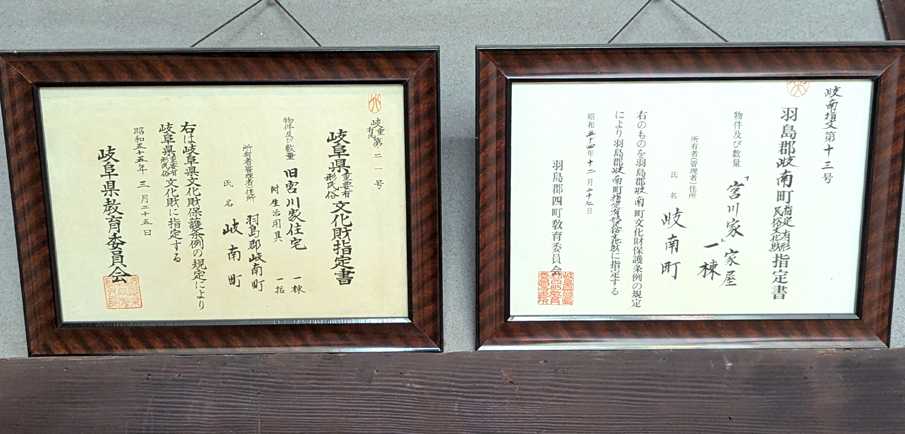 岐重第二一号
有民
岐阜県重要有形民俗文化財指定書
物件及び数量
旧宮川家住宅 一棟
附生活用具 一括
所有者(管理者)住所
羽島郡岐南町
氏名 岐南町
右は岐阜県文化財保護条例の規定により
岐阜県重要有形民俗文化財に指定する
昭和五十五年三月二十五日
岐阜県教育委員会
岐南指文第十三号
羽島郡岐南町指定有形民俗文化財指定書
物件及び数量
「宮川家」家屋
一棟
所有者(管理者)住所
氏名 岐南町
右のものを羽島郡岐南町文化財保護条例の規定
により羽島郡岐南町指定有形民俗文化財に指定する
昭和五十四年十二月
羽島郡四町教育委員会